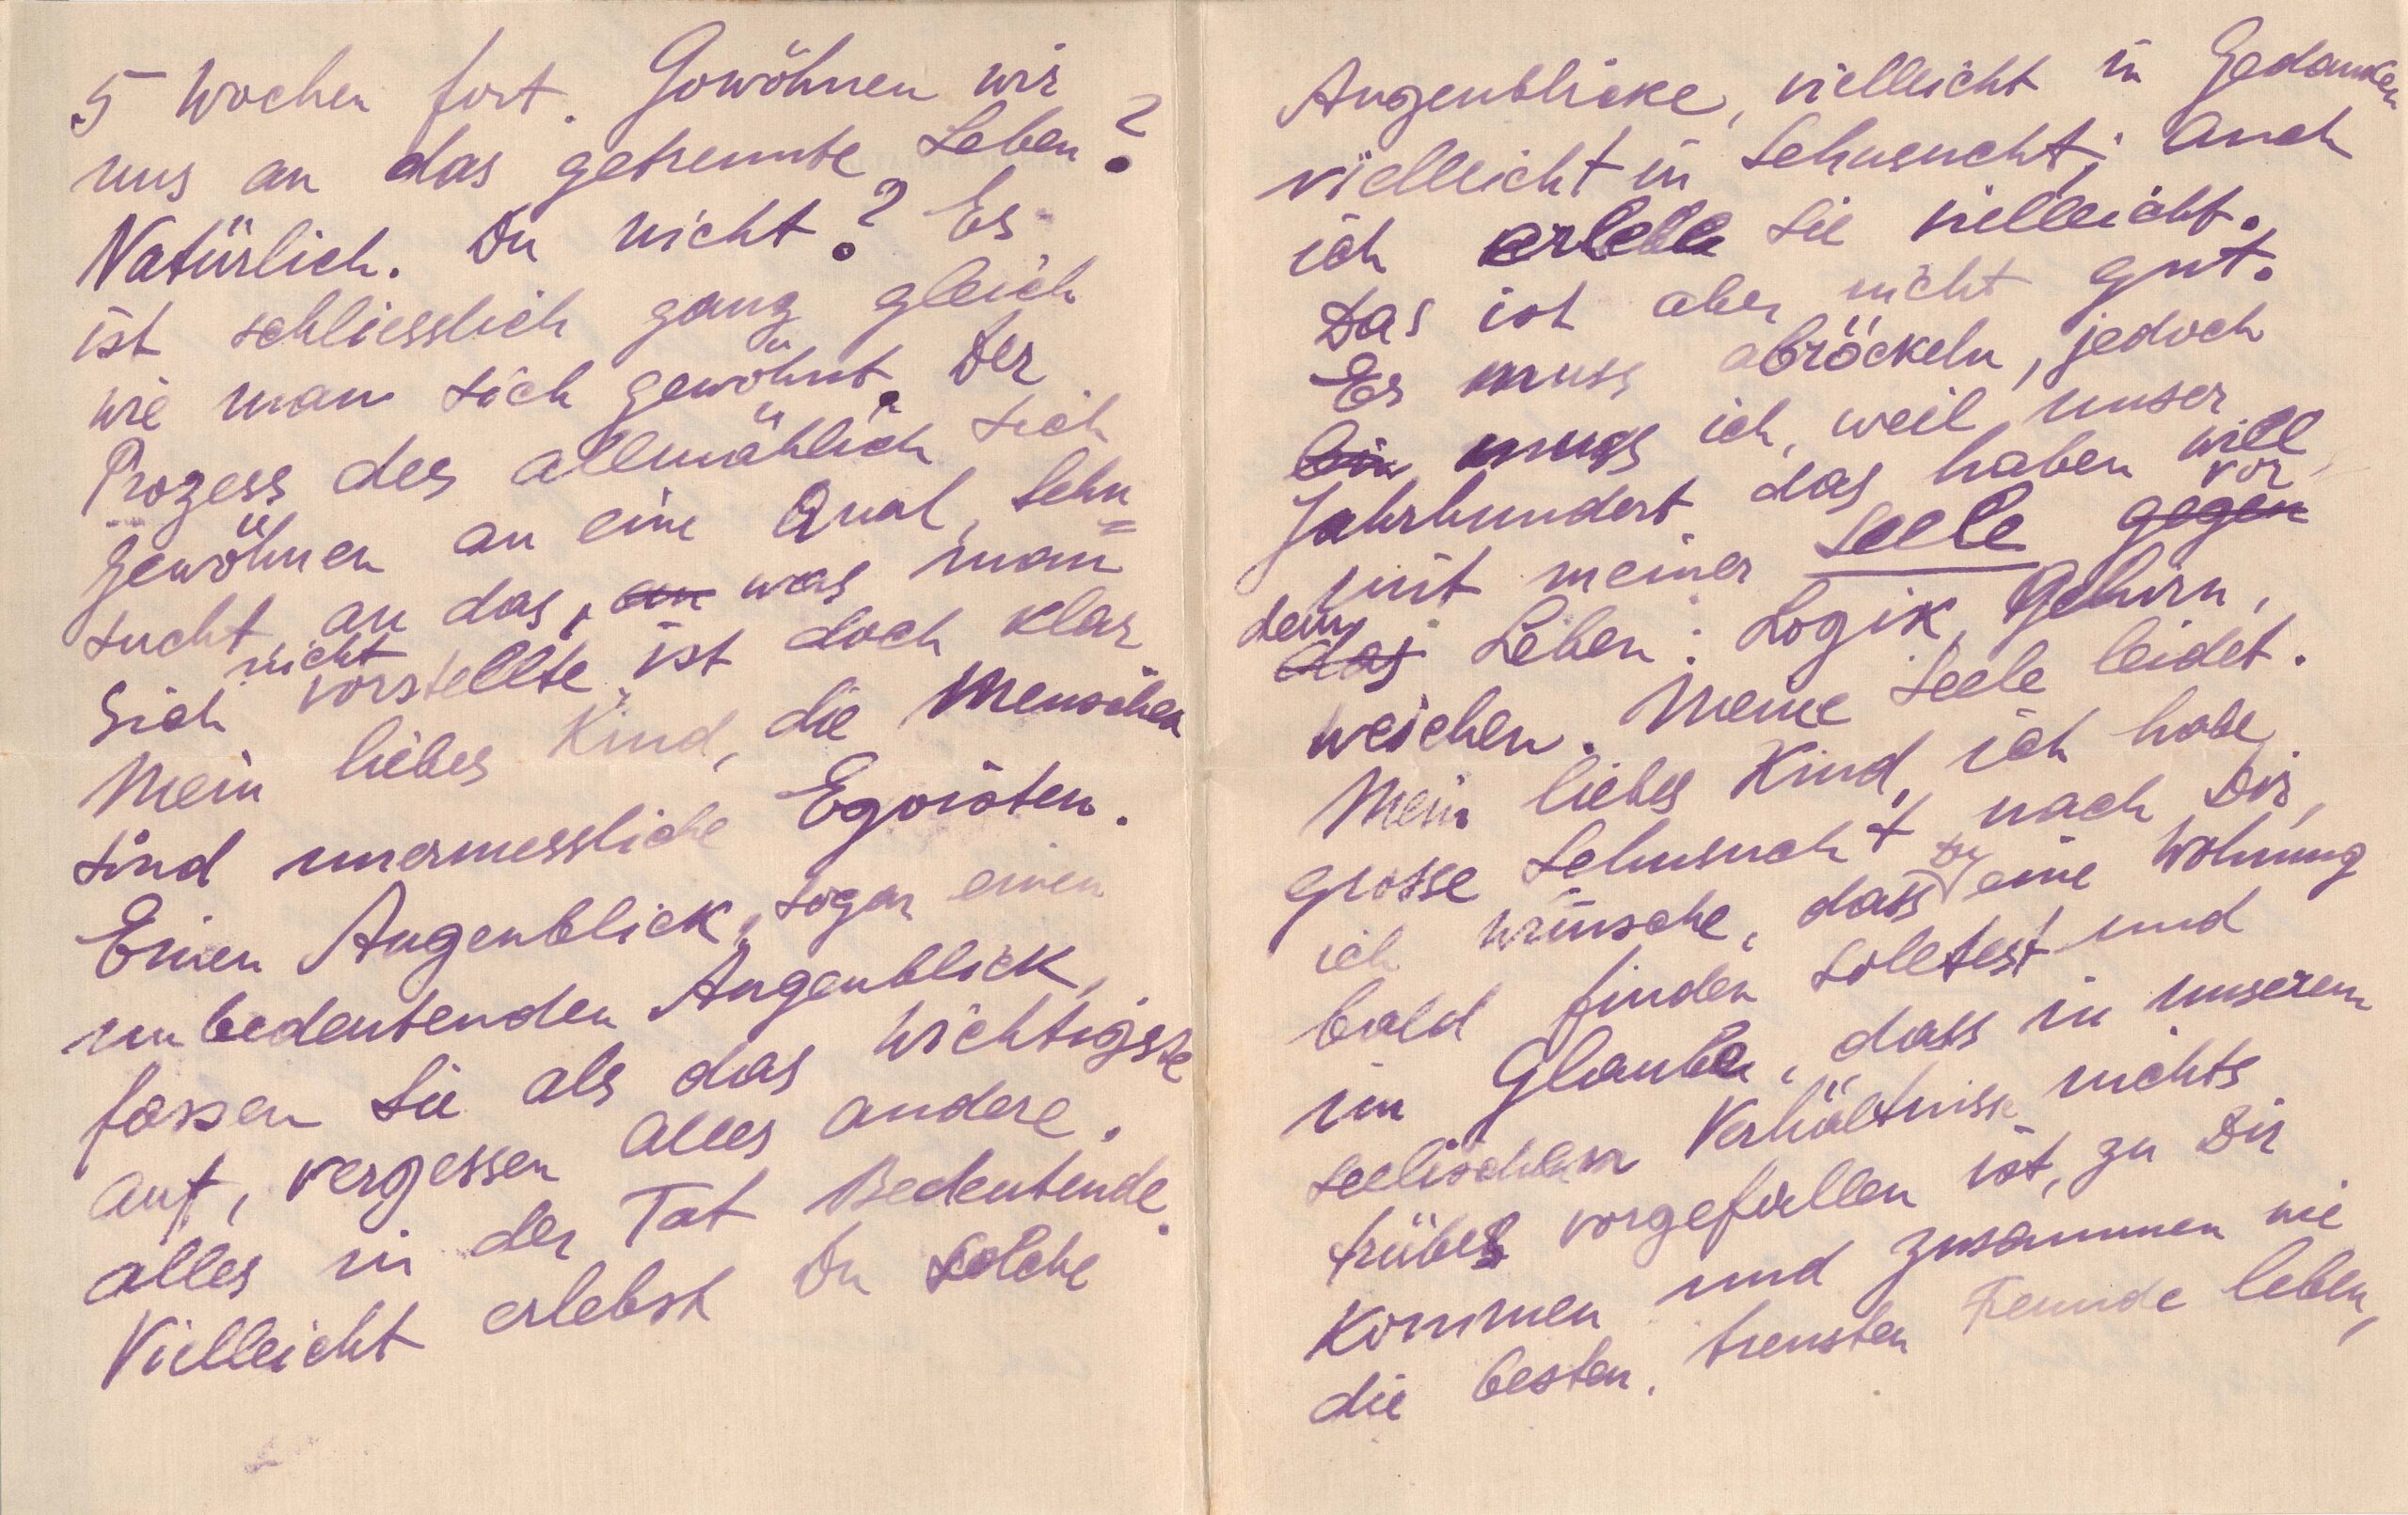 5 Wochen fort. Gowöhnen wir
uns an das getrennte Leben?
Natürlich. Du nicht? Es
ist schliesslich ganz gleich
wie man sich gewöhnt. Der
Prozess des allmählich sich
gewöhnen an eine Qual, Sehn=
sucht, an das, an was man
sich nicht vorstellte ist doch klar
Mein liebes Kind, die Menschen
sind unermessliche Egoisten.
Einen Augenblick, sogar einen
unbedeutenden Augenblick,
fassen sie als das wichtigste
auf, vergessen alles andere.
alles in der Tat Bedeutende.
Vielleicht erlebst Du solche
Augenblicke, vielleicht in Gedanken
vielleicht in Sehnsucht; auch
ich erlebe sie vielleicht.
Das ist aber nicht gut.
Es muss abröckeln, jedoch
bin muss ich, weil unser
Jahrhundert das haben will,
mit meiner Seele gegen vor
dem das Leben: Logik, Gehirn,
weichen. Meine Seele leidet.
Mein liebes Kind, ich habe
grosse Sehnsucht nach Dir,
ich wünsche, dass Du eine Wohnung
bald finden solltest und
im Glauben, dass in unserem
seelischen Verhältnisse nichts
trübes vorgefallen ist, zu Dir
kommen und zusammen wie
die besten, treusten Feunde leben,